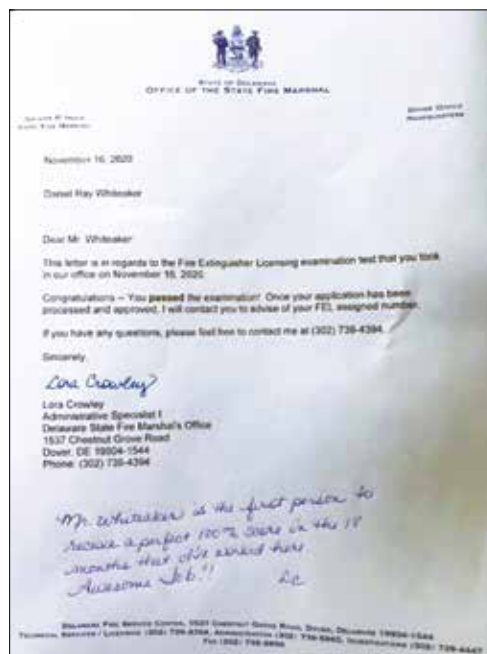 STATE OF DELAWARE
OFFICE OF THE STATE FIRE MARSHAL
HEADQUARTERS
November 16, 2020
Daniel Ray Whiteaker
Dear Mr. Whiteaker
This letter is in regards to the Fire Extinguisher Licensing examination test that you took
in our office on November 16, 2020.
Congratulations – You passed the examination! Once your application has been
processed and approved, I will contact you to advise of your FEL assigned number.
If you have any questions, please feel free to contact me at (302) 739-4394.
Sincerely,
Lora Crowley
Lora Crowley
Administrative Specialist I
Delaware State Fire Marshal's Office
1537 Chestnut Grove Road
Dover, DE 19904-1544
Phone: (302) 739-4394
Mr. Whiteaker is the first person to
receive a perfect 100% score in the 18
months that I've worked here.
Awesome Job!!
LC
DELAWARE FIRE SERVICE CENTER, 1537 CHESTNUT GROVE ROAD, DOVER, DELAWARE 19904-1544